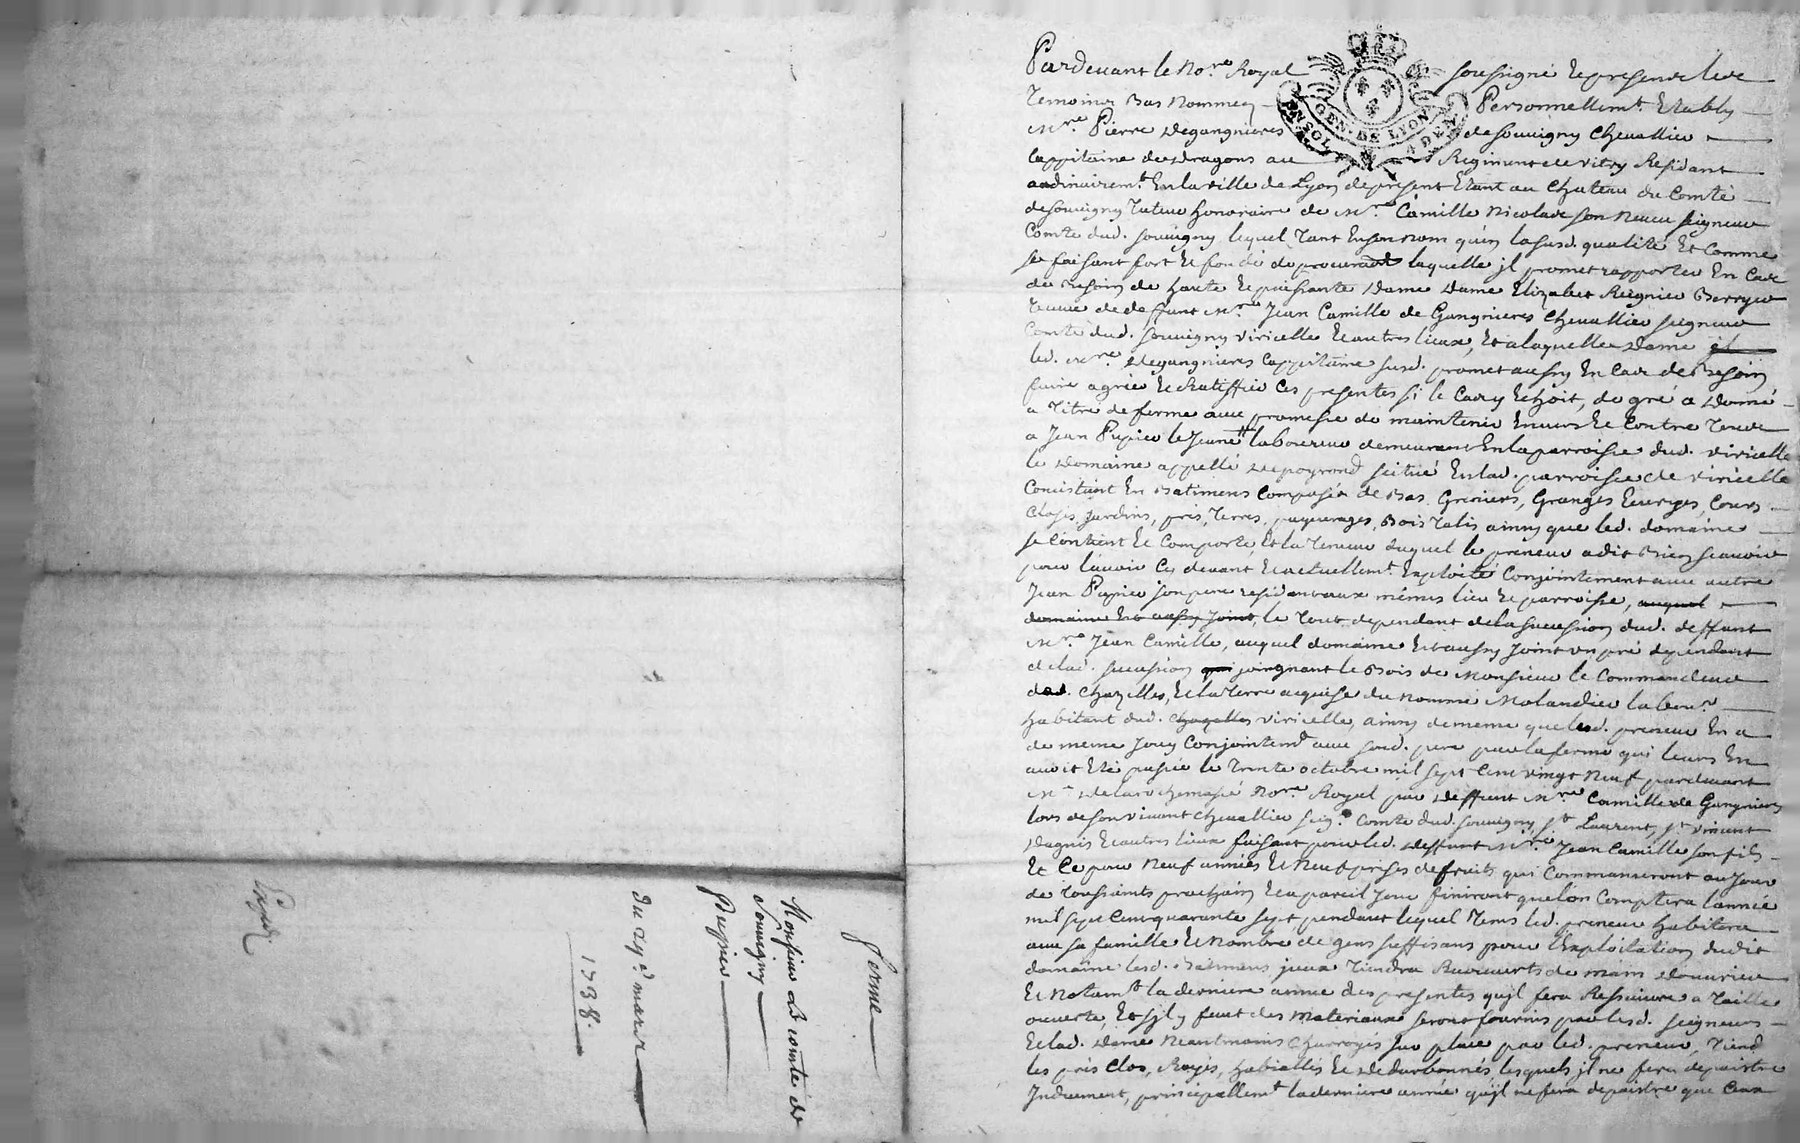 Pardevant le No.re Royal soussigné et presents les
Temoins Bas Nommez Personnellem.t Etably
M.re Pierre Degangnieres de Souvigny Chevallier
Cappitaine des Dragons au Regiment de Vitry Residant
ordinairem.t En la ville de Lyon de present Etant au Chateau du Comté
de Souvigny Tuteur honoraire de M.re Camille Nicolas son Neveu seigneur
Comte dud. Souvigny lequel tant En son nom qu'en la susd. qualité Et Comme
se faisant fort et fondé de procuration laquelle il promet rapporter En Cas
de Besoin de haute et puissante Dame Dame Elizabet Reignier
veuve de deffunt M.re Jean Camille de Gangnieres Chevallier seigneur
Comte dud. Souvigny Viricelle et autres lieux, Et a laquelle Dame il
led. M.re Degangnieres Cappitaine susd. promet aussy En Cas de Besoin
faire agréer et Ratiffier Ces presentes si le Cas y Echoit, de gré a Donné
a Titre de ferme avec promesse de maintenir Envers et Contre Tous
a Jean Pupier le Jeune laboureur demeurant En la parroisse dud. Viricelle
le Domaine appellé Depoyrond scitué En lad. parroisse de Viricelle
Concistant En Batimens Composés de Bas, Greniers, Granges Ecuries, Cours
Clos, Jardins, prés, Terres, paquerages, Bois Talis ainsy que led. domaine
se Contient et Comporte, Et la Teneur duquel le preneur a dit Bien scavoir
pour l'avoir Cy devant et actuellem.t Exploité Conjointement avec autre
Jean Pupier son pere residant aux mêmes lieu et parroisse, auquel
domaine Est aussy Joint, le Tout dependant de la succession dud. deffunt
M.re Jean Camille, auquel domaine Est aussy Joint un pré dependant
de lad. succession qui joingnant le Bois de Monsieur le Commandeur
de Chazelles, Et la Terre acquise du nommé Molandier labour.r
habitant dud. Chazelles Viricelle, ainsy de meme que led. preneur En a
de meme Jouy Conjointem.t avec sond. pere par la ferme qui leurs En
avoit Eté passée le Trente octobre mil sept Cent vingt Neuf pardevant
M.e Delarochemassé No.re Royal par Deffunt M.re Camille de Gangnieres
lors de son vivant Chevallier seig.r Comte dud. Souvigny, S.t Laurent, S.t Vincent
Dagnis et autres lieux faisant pour led. Deffunt M.re Jean Camille son fils
Et Ce pour Neuf années et Neuf prises de fruits qui Commanseront au Jour
de Toussaints prochain et a pareil Jour finiront que l'on Comptera l'année
mil sept Cent quarante sept pendant lequel Tems led. preneur habitera
avec sa famille et Nombre de gens suffisans pour l'Exploitation dudit
domaine lesd. Batimens, Tiendra Recouverts de main Douvrier
Et Notam.t la derniere année des presentes qu'il fera Ressuivre a Taille
ouverte, Et s'il y faut des Materiaux seront fournis par lesd. seigneurs
Et lad. Dame Neantmoins Charroyés sur place par led. preneur, Tiendra
les prés Clos, Rayés, habiallés et Dedarbonnés lesquels il ne fera depaistre
Induement, principallem.t la derniere année qu'il ne fera depaistre que Ceux
Ferme
Monsieur Le comte de
Souvigny
Pupier
Du 29.e mars
1738.